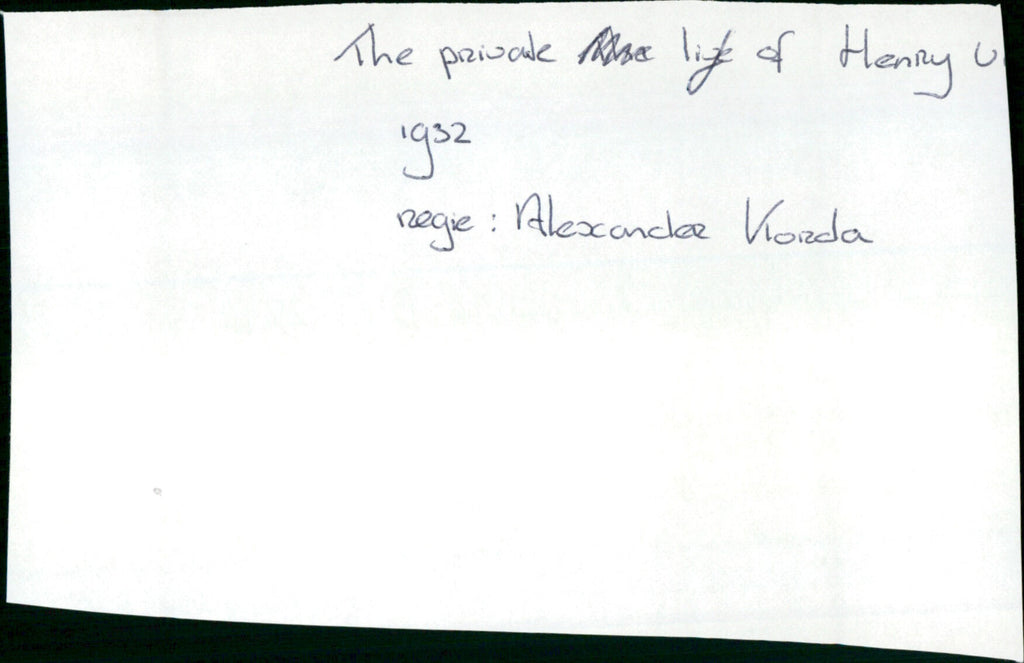 The private life of Henry V
1932
regie: Alexander Korda